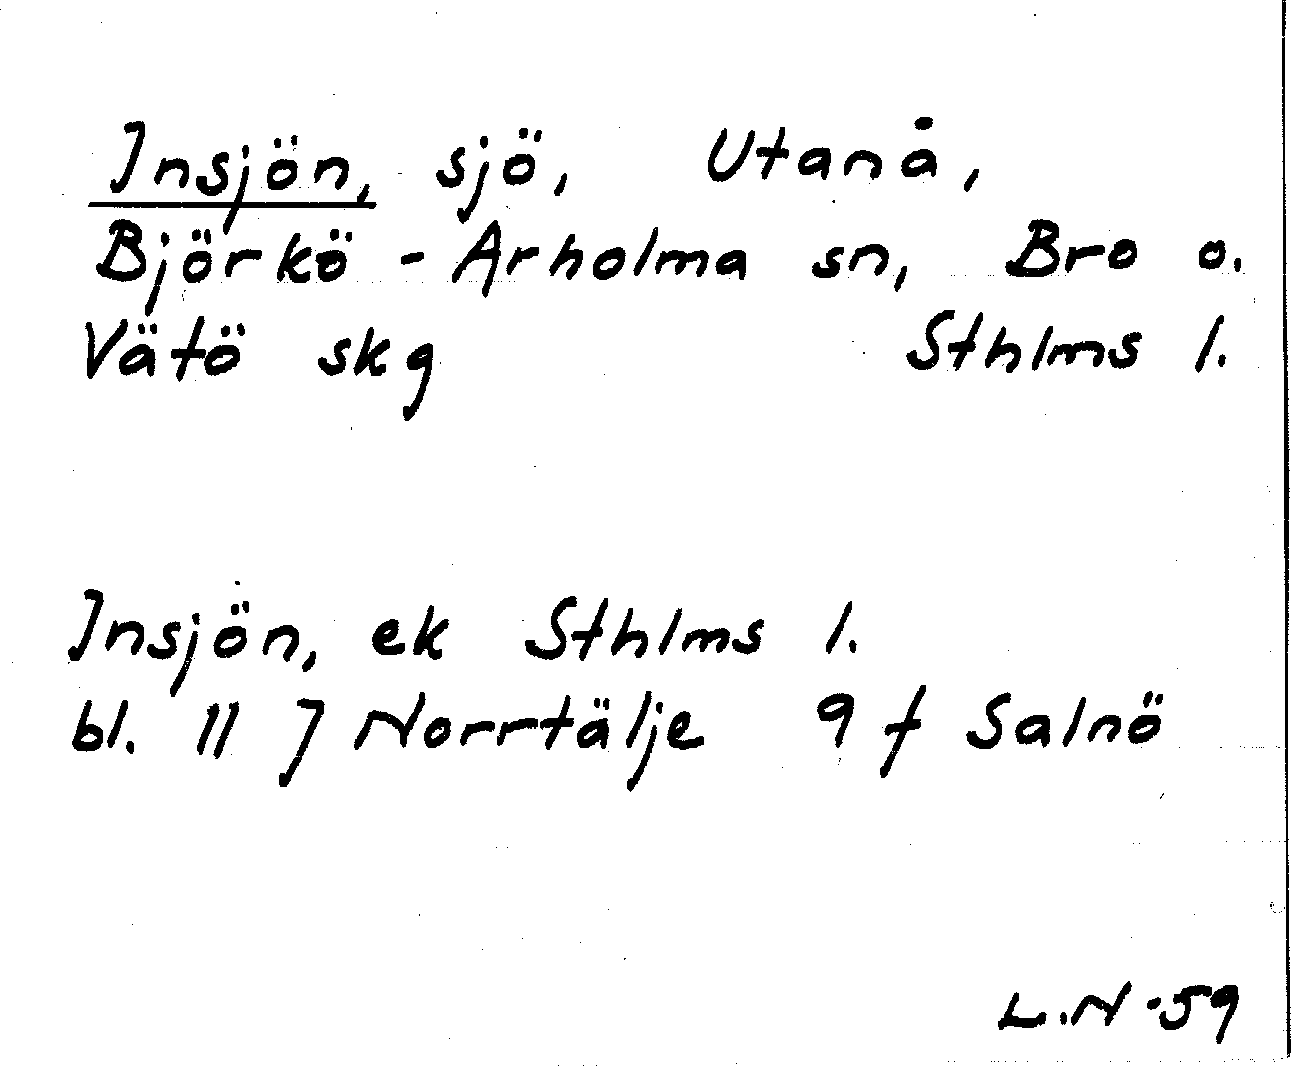 Insjön, sjö, Utanå,
Björkö - Arholma sn, Bro o.
Vätö skg Sthlms l.
Insjön, ek Sthlms l.
bl. 11 J Norrtälje 9 f Salnö
L.N -59